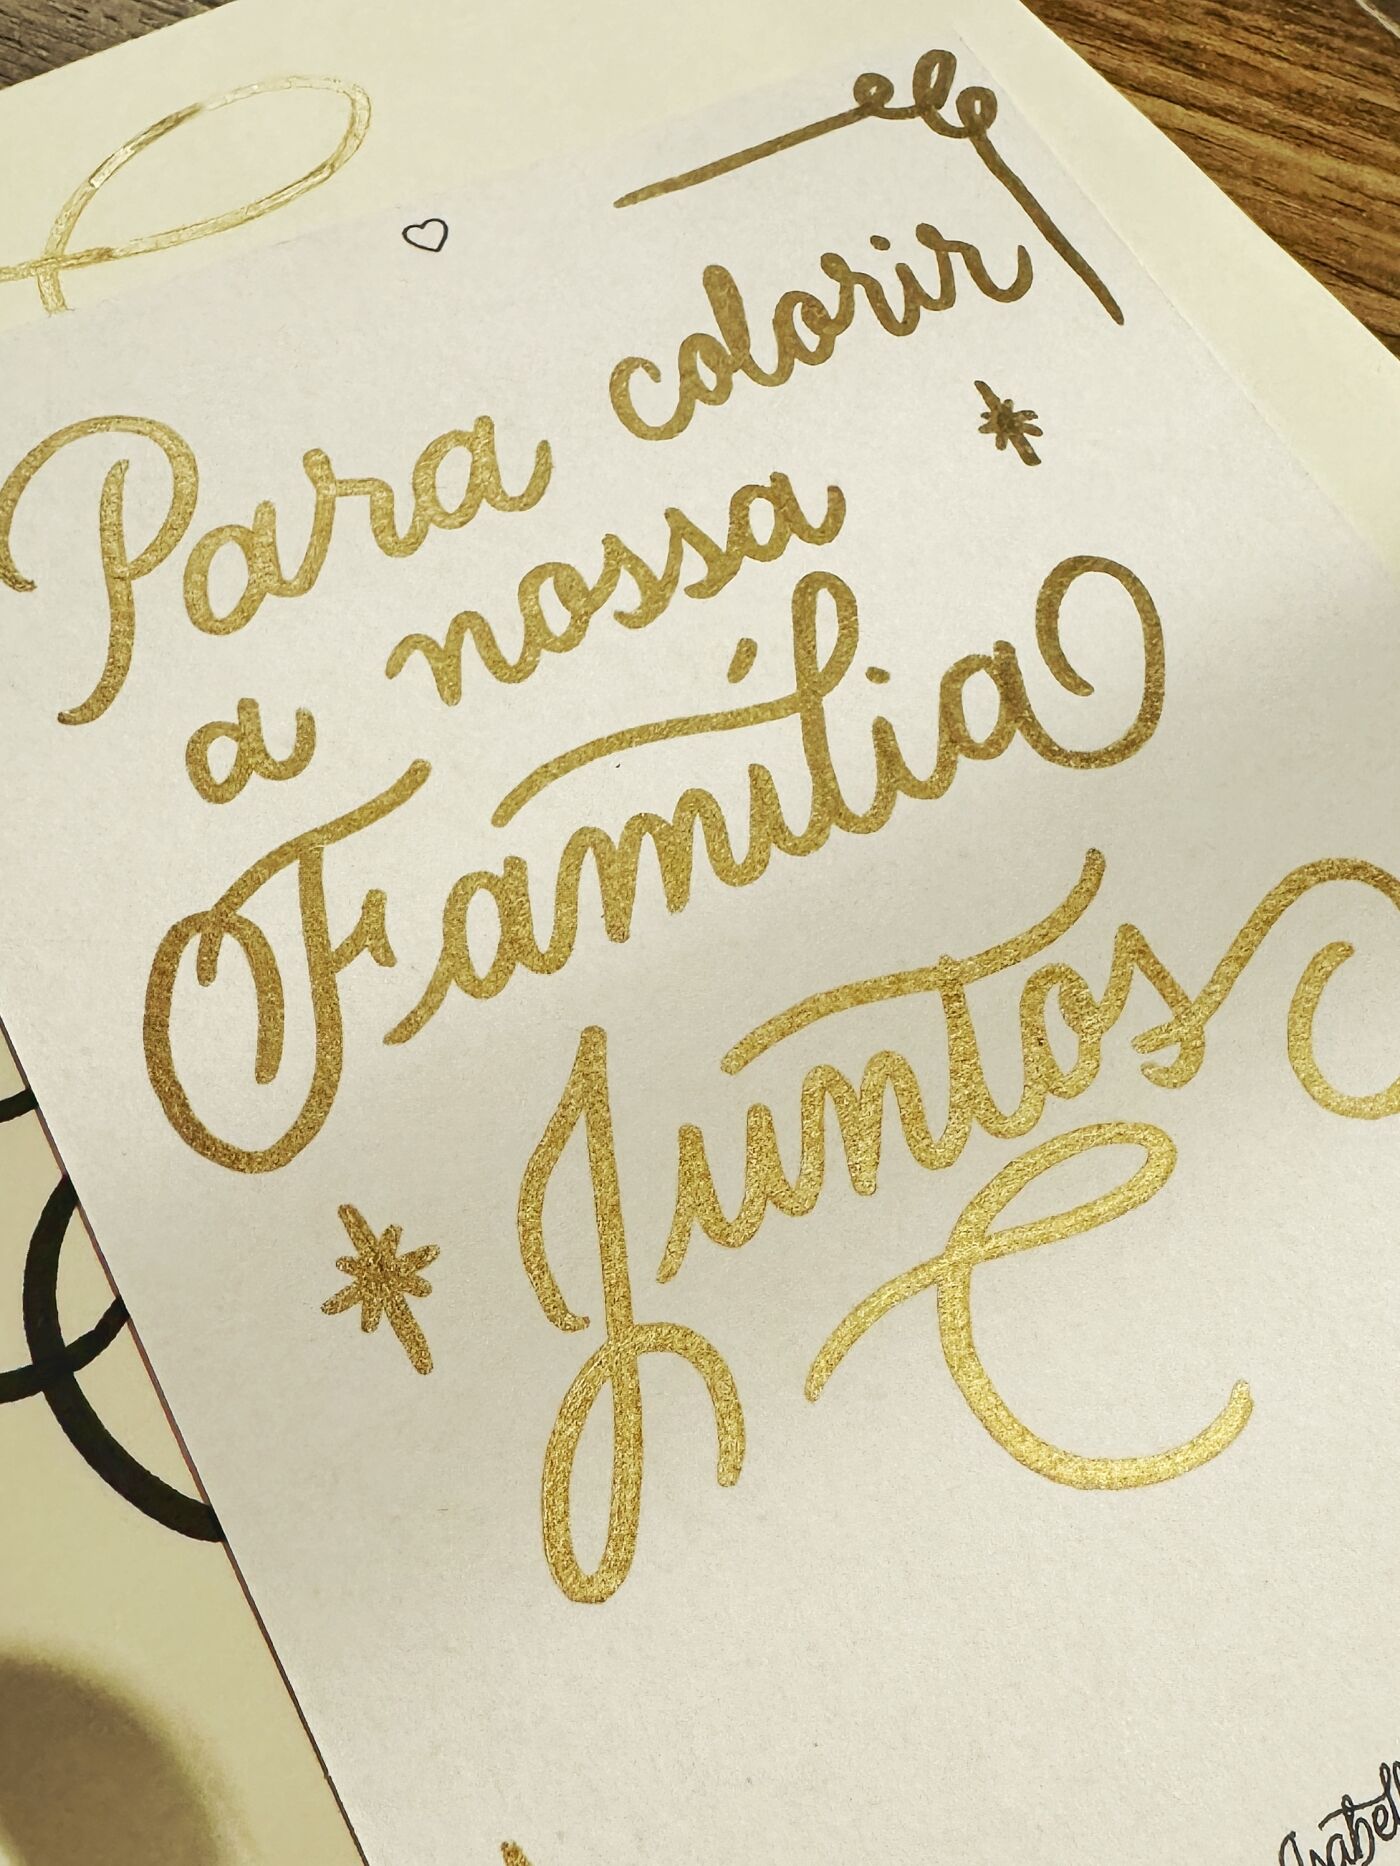 Para colorir
a nossa
Família
Juntos